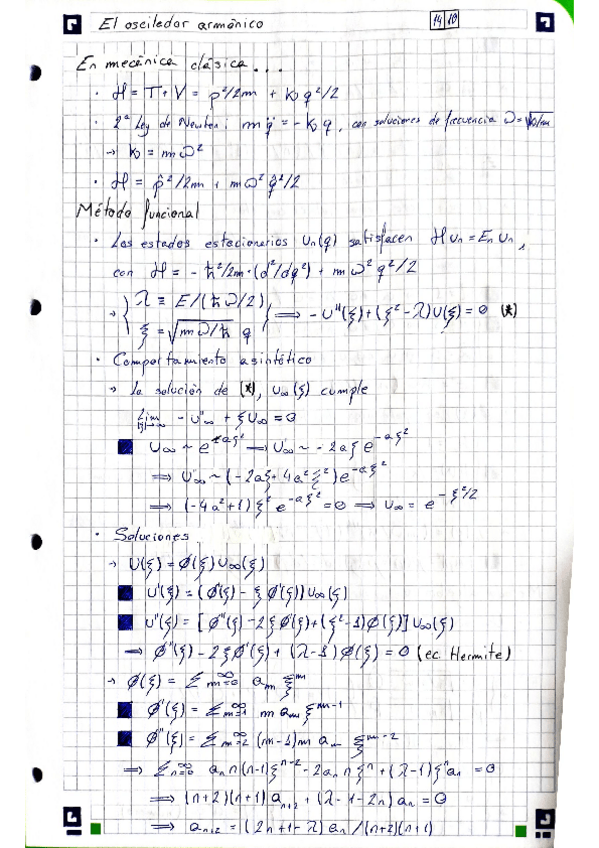 El oscilador armónico 14 10
En mecánica clásica...
· H = T + V = p²/2m + k₀ q²/2
· 2ª Ley de Newton: m q̈ = - k₀ q, con soluciones de frecuencia ω = √k₀/m
→ k₀ = m ω²
· H = p̂²/2m + m ω² q̂²/2
Método funcional
· Los estados estacionarios Uₙ(q) satisfacen H Uₙ = Eₙ Uₙ,
con H = - ħ²/2m · (d²/dq²) + m ω² q²/2
→ { λ ≡ E/(ħω/2)
ξ = √mω/ħ q } ⟹ - U''(ξ) + (ξ² - λ) U(ξ) = 0 (*)
· Comportamiento asintótico
→ la solución de (*), U∞(ξ) cumple
lim |ξ|→∞ - U''∞ + ξ U∞ = 0
U∞ ~ e^-aξ² → U'∞ ~ - 2aξ e^-aξ²
⟹ U''∞ ~ (-2aξ + 4a²ξ²) e^-aξ²
⟹ (-4a² + 1) ξ² e^-aξ² = 0 ⟹ U∞ = e^-ξ²/2
· Soluciones
→ U(ξ) = Ø(ξ) U∞(ξ)
U'(ξ) = (Ø'(ξ) - ξ Ø(ξ)) U∞(ξ)
U''(ξ) = [Ø''(ξ) - 2ξ Ø'(ξ) + (ξ² - 1) Ø(ξ)] U∞(ξ)
⟹ Ø''(ξ) - 2ξ Ø'(ξ) + (λ - 1) Ø(ξ) = 0 (ec. Hermite)
→ Ø(ξ) = Σ^∞ m=0 aₘ ξ^m
Ø'(ξ) = Σ^∞ m=1 m aₘ ξ^m-1
Ø''(ξ) = Σ^∞ m=2 (m-1) m aₘ ξ^m-2
⟹ Σ^∞ n=0 aₙ n(n-1) ξ^n-2 - 2aₙ n ξ^n + (λ-1) ξ^n aₙ = 0
⟹ (n+2)(n+1) aₙ₊₂ + (λ - 1 - 2n) aₙ = 0
⟹ aₙ₊₂ = (2n + 1 - λ) aₙ / (n+2)(n+1)